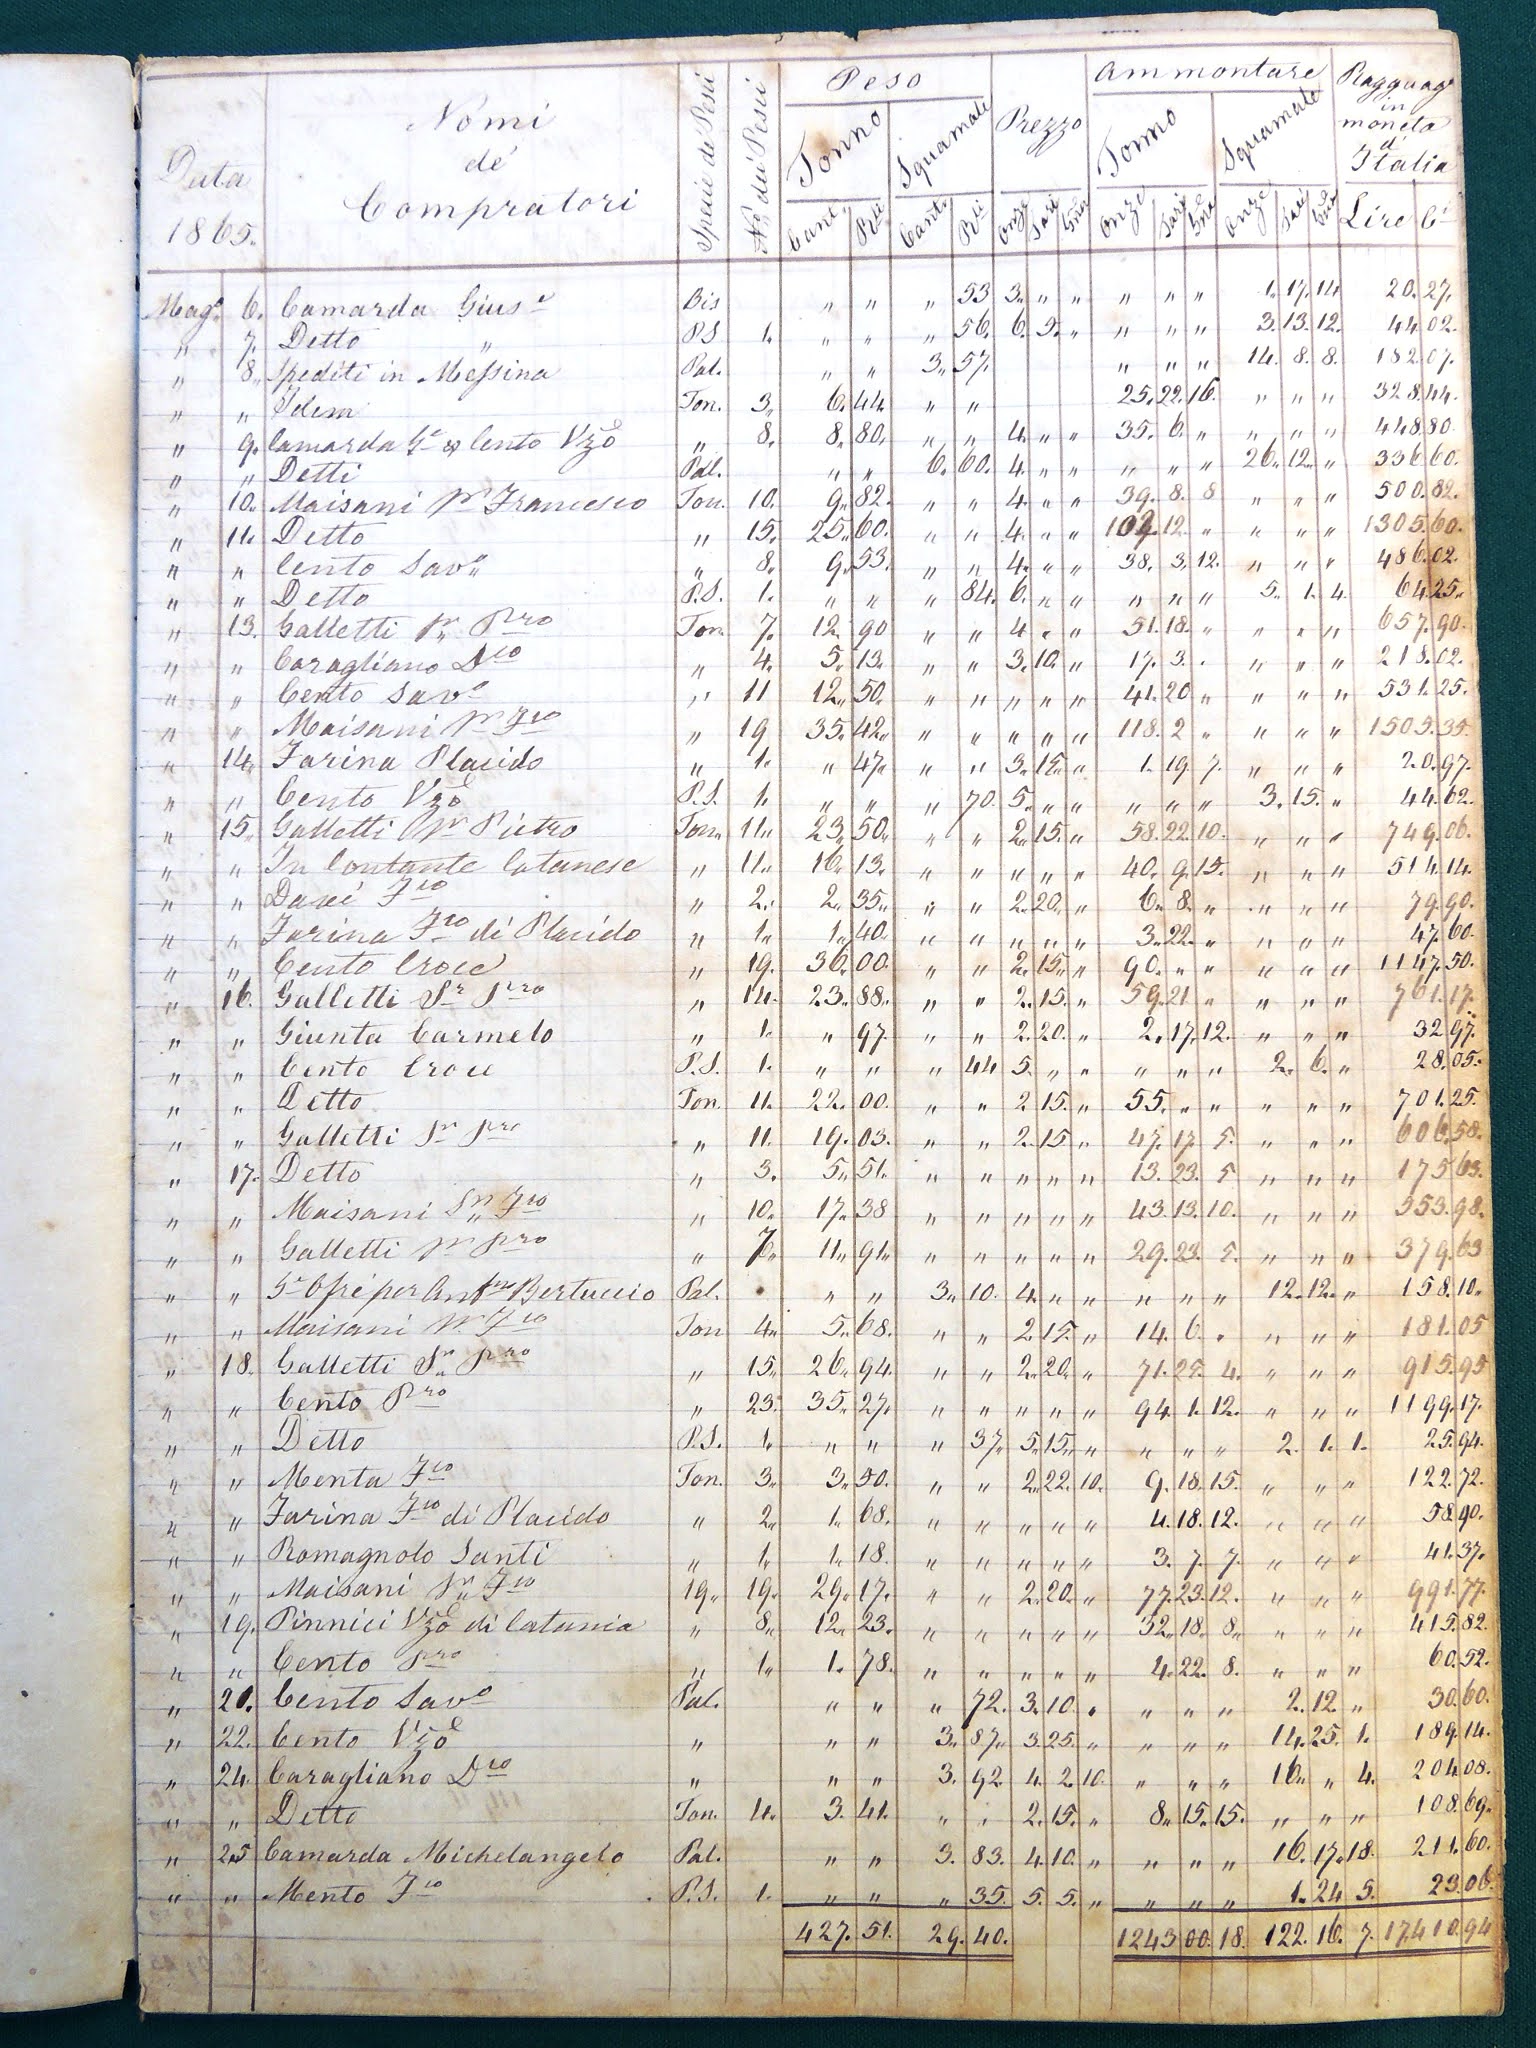 Data 1865. Nomi de' Compratori Specie de Pesci No dei Pesci Peso Tonno Squamate Prezzo Ammontare Tonno Squamate Ragguag° in moneta d' Italia
Cant. Rli Cant. Rli Onze Tarì Gna Onze Tarì Gna Onze Tarì Gna Lire C.i
Mag° 6. Camarda Gius.e Bis " " " 53 3. " " " " " 1. 17. 14. 20. 27.
" 7. Detto " P.S 1. " " " 56. 6. 5. " " " " 3. 13. 12. 44. 02.
" 8. Spediti in Messina Pal. " " 3. 57. " " " 14. 8. 8. 182. 07.
" " Idem Ton. 3. 6. 44. " " 25. 22. 16. " " " 328. 44.
" 9. Camarda G.e & Cento Vzo " 8. 8. 80. " " 4. " " 35. 6. " " " " 448. 80.
" " Detti Pal. " " 6. 60. 4. " " " " " 26. 12. " 336. 60.
" 10. Maisani Sr Francesco Ton. 10. 9. 82. " " 4. " " 39. 8. 8 " " " 500. 82.
" 11. Detto " 15. 25. 60. " " 4. " " 102. 12. " " " " 1305. 60.
" " Cento Sav.o " 8. 9. 53. " " 4. " " 38. 3. 12. " " " 486. 02.
" " Detto P.S. 1. " " " 84. 6. " " " " " 5. 1. 4. 64. 25.
" 13. Galletti Sr Pro Ton. 7. 12. 90 " " 4. " " 51. 18. " " " " 657. 90.
" " Caragliano Dco " 4. 5. 13. " " 3. 10. " 17. 3. " " " " 218. 02.
" " Cento Sav.o " 11 12. 50. " " " " " 41. 20 " " " " 531. 25.
" " Maisani Sr Fco " 19 35. 42. " " " " " 118. 2 " " " " 1505. 35.
" 14. Farina Placido " 1. " 47. " " 3. 15. " 1. 19. 7. " " " 20. 97.
" " Cento Vzo P.S. 1. " " " 70. 5. " " " " " 3. 15. " 44. 62.
" 15. Galletti Sr Pietro Ton. 11. 23. 50. " " 2. 15. " 58. 22. 10. " " " 749. 06.
" " In Contante Catanese " 11. 16. 13. " " " " " 40. 9. 15. " " " 514. 14.
" " Daxé Fco " 2. 2. 35. " " 2. 20. " 6. 8. " " " " 79. 90.
" " Farina Fco di Placido " 1. 1. 40. " " " " " 3. 22. " " " " 47. 60.
" " Cento Croce " 19. 36. 00. " " 2. 15. " 90. " " " " " 1147. 50.
" 16. Galletti Sr Pro " 14. 23. 88. " " 2. 15. " 59. 21. " " " " 761. 17.
" " Giunta Carmelo " 1. " 97. " " 2. 20. " 2. 17. 12. " " " 32. 97.
" " Cento Croce P.S. 1. " " " 44 5. " " " " " 2. 6. " 28. 05.
" " Detto Ton. 11. 22. 00. " " 2. 15. " 55. " " " " " 701. 25.
" " Galletti Sr Pro " 11. 19. 03. " " 2. 15 " 47. 17. 5. " " " 606. 58.
" 17. Detto " 3. 5. 51. " " " " " 13. 23. 5 " " " 175 63.
" " Maisani Sr Fco " 10. 17. 38 " " " " " 43. 13. 10. " " " 553. 98.
" " Galletti Sr Pro " 7. 11. 91. " " " " " 29. 23. 5. " " " 379. 63
" " per Bertuccio Pal. " " 3. 10. 4. " " " " " 12. 12. " 158. 10.
" " Maisani Sr Fco Ton 4. 5. 68. " " 2. 15. " 14. 6. " " " " 181. 05
" 18. Galletti Sr Pro " 15. 26. 94. " " 2. 20. " 71. 25. 4. " " " 915. 95
" " Cento Pro " 23. 35. 27. " " " " " 94. 1. 12. " " " 1199. 17.
" " Detto P.S. 1. " " " 37. 5. 15. " " " " 2. 1. 1. 25. 94.
" " Menta Fco Ton. 3. 3. 50. " " 2. 22. 10. 9. 18. 15. " " " 122. 72.
" " Farina Fco di Placido " 2. 1. 68. " " " " " 4. 18. 12. " " " 58. 90.
" " Romagnolo Santi " 1. 1. 18. " " " " " 3. 7. 7. " " " 41. 37.
" " Maisani Sr Fco 19. 19. 29. 17. " " 2. 20. " 77. 23. 12. " " " 991. 77.
" 19. Pinnici Vzo di Catania " 8. 12. 23. " " " " " 32. 18. 8. " " " 415. 82.
" " Cento Pro " 1. 1. 78. " " " " " 4. 22. 8. " " " 60. 52.
" 20. Cento Sav.o Pal. " " " 72. 3. 10. " " " " 2. 12. " 30. 60.
" 22. Cento Vzo " " " 3. 87. 3. 25. " " " " 14. 25. 1. 189. 14.
" 24. Caragliano Dco " " " 3. 92. 4. 2. 10. " " " 16. " 4. 204. 08.
" " Detto Ton. 4. 3. 41. " " 2. 15. " 8. 15. 15. " " " 108. 69.
" 25 Camarda Michelangelo Pal. " " 3. 83. 4. 10. " " " " 16. 17. 18. 211. 60.
" " Mento Fco P.S. 1. " " " 35. 5. 5. " " " " 1. 24 5. 23. 06.
427. 51. 29. 40. 1243 00. 18. 122. 16. 7. 17410. 94